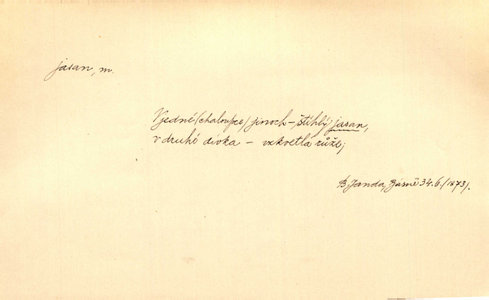 jasan, m.
V jedné (chaloupce) jinoch – štíhlý jasan,
v druhé dívka – vzkvetlá růže;
B. Janda, Básně 34. 6. (1873).